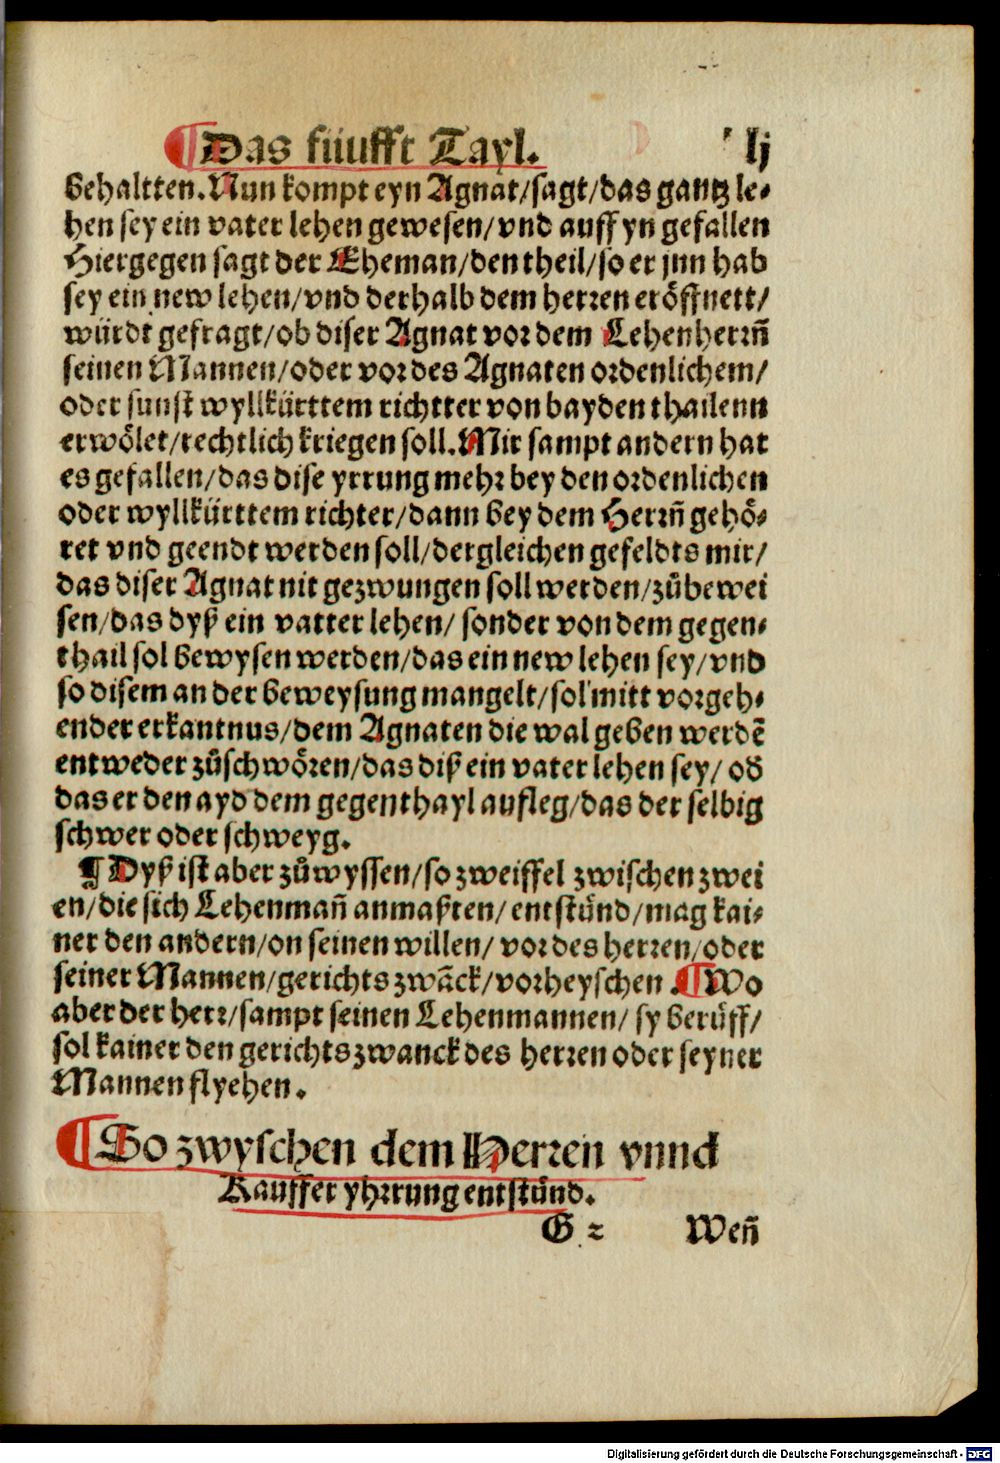 ¶ Das fuͤufft Tayl. lj
behaltten. Nun kompt eyn Agnat/sagt/das gantz le⸗
hen sey ein vater lehen gewesen/vnd auff yn gefallen
Hiergegen sagt der Eheman/den theil/so er jnn hab
sey ein new lehen/vnd derhalb dem herren eroͤffnett/
wuͤrdt gefragt/ob diser Agnat vor dem Lehenherrñ
seinen Mannen/oder vor des Agnaten ordenlichem/
oder sunst wyllkuͤrttem richtter von bayden thailenn
erwoͤlet/rechtlich kriegen soll. Mir sampt andern hat
es gefallen/das dise yrrung mehr bey den ordenlichen
oder wyllkuͤrttem richter/dann bey dem Herrñ gehoͤ⸗
ret vnd geendt werden soll/dergleichen gefeldts mir/
das diser Agnat nit gezwungen soll werden/zuͦbewei
sen/das dyß ein vatter lehen/ sonder von dem gegen⸗
thail sol bewysen werden/das ein new lehen sey/vnd
so disem an der beweysung mangelt/sol mitt vorgeh⸗
ender erkantnus/dem Agnaten die wal geben werdē
entweder zuͦschwoͤren/das diß ein vater lehen sey/ od
das er den ayd dem gegenthayl aufleg/das der selbig
schwer oder schweyg.
¶ Dyß ist aber zuͦwyssen/so zweiffel zwischen zwei
en/die sich Lehenmañ anmaßten/entstuͤnd/mag kai⸗
ner den andern/on seinen willen/ vor des herren/oder
seiner Mannen/gerichts zwāck/vorheyschen. ¶ Wo
aber der herr/sampt seinen Lehenmannen/ sy beruͤff/
sol kainer den gerichtszwanck des herren oder seyner
Mannen flyehen.
¶ So zwyschen dem Herren vnnd
Kauffer yhrrung entstuͤnd.
G 2 Weñ
Digitalisierung gefördert durch die Deutsche Forschungsgemeinschaft - DFG